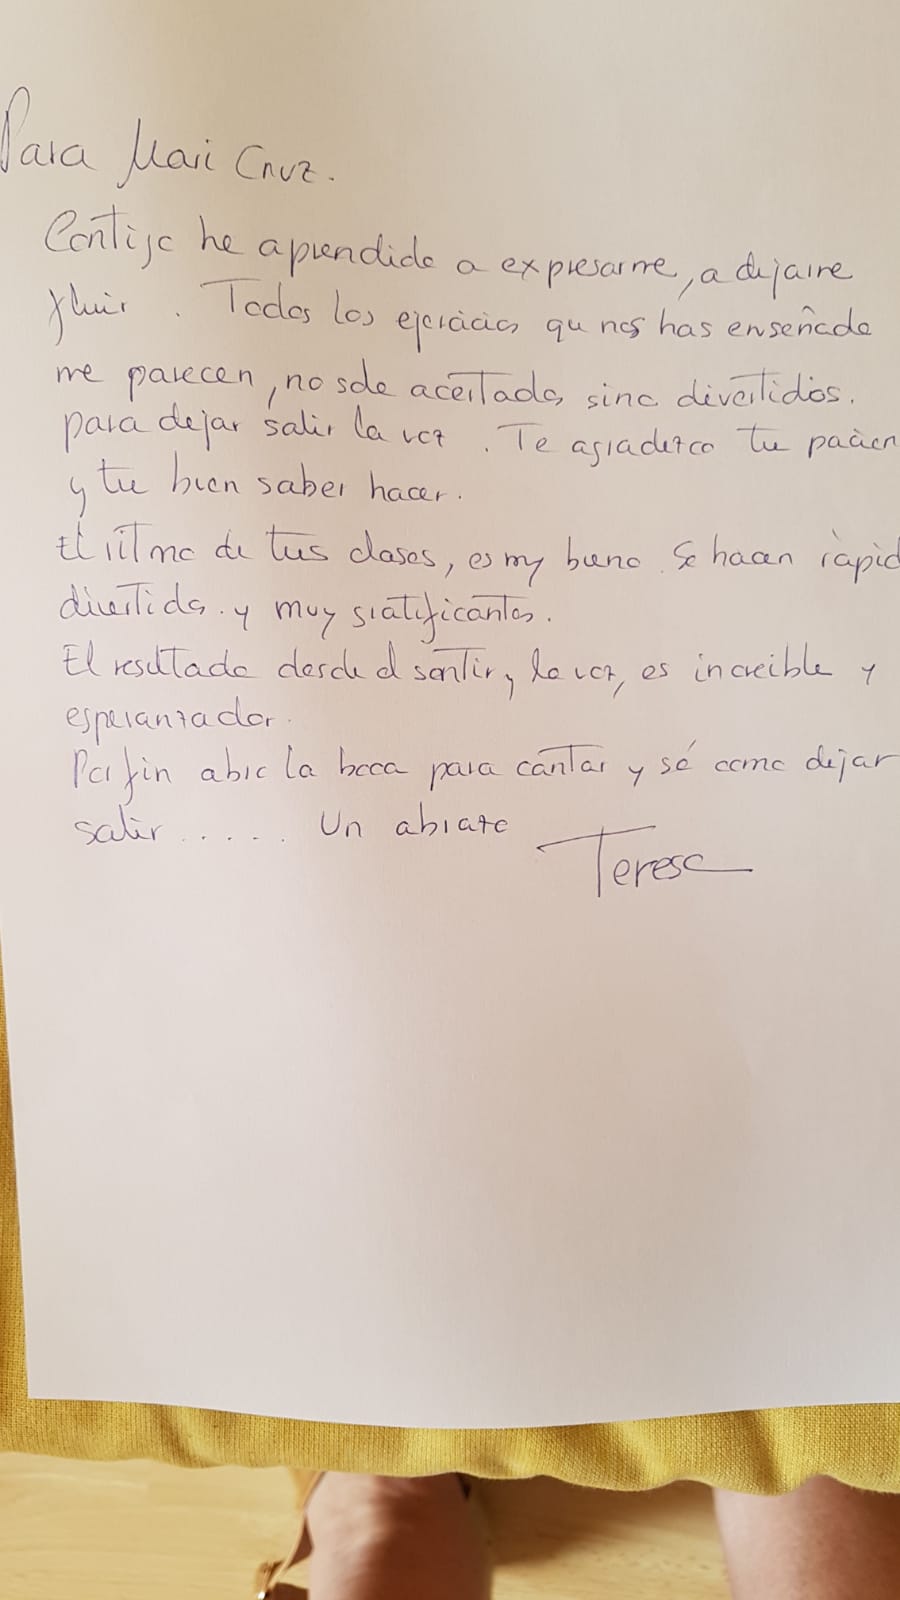 Para Mari Cruz.
Contigo he aprendido a expresarme, a dejarme
fluir. Todos los ejercicios que nos has enseñado
me parecen, no solo acertados sino divertidos.
para dejar salir la voz. Te agradezco tu pacien
y tu bien saber hacer.
El ritmo de tus clases, es muy bueno. Se hacen rápid
divertidas y muy gratificantes.
El resultado desde el sentir y la voz, es increible y
esperanzador.
Por fin abro la boca para cantar y sé como dejar
salir..... Un abrazo
Teresa